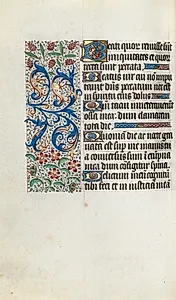 Beati quorum remisse sunt
iniquitates et quorum
tecta sunt peccata.
Beatus vir cui non impu
tavit dñs peccatum nec est
in spiritu eius dolus
Quoniam tacui inveteraverunt
ossa mea: dum clamarem
tota die.
Quoniam die ac nocte gra
vata est super me manus tua
conversus sum in erumpna
mea dum configitur spina.
Delictum meum cognitum
tibi feci et iniusticiam mea